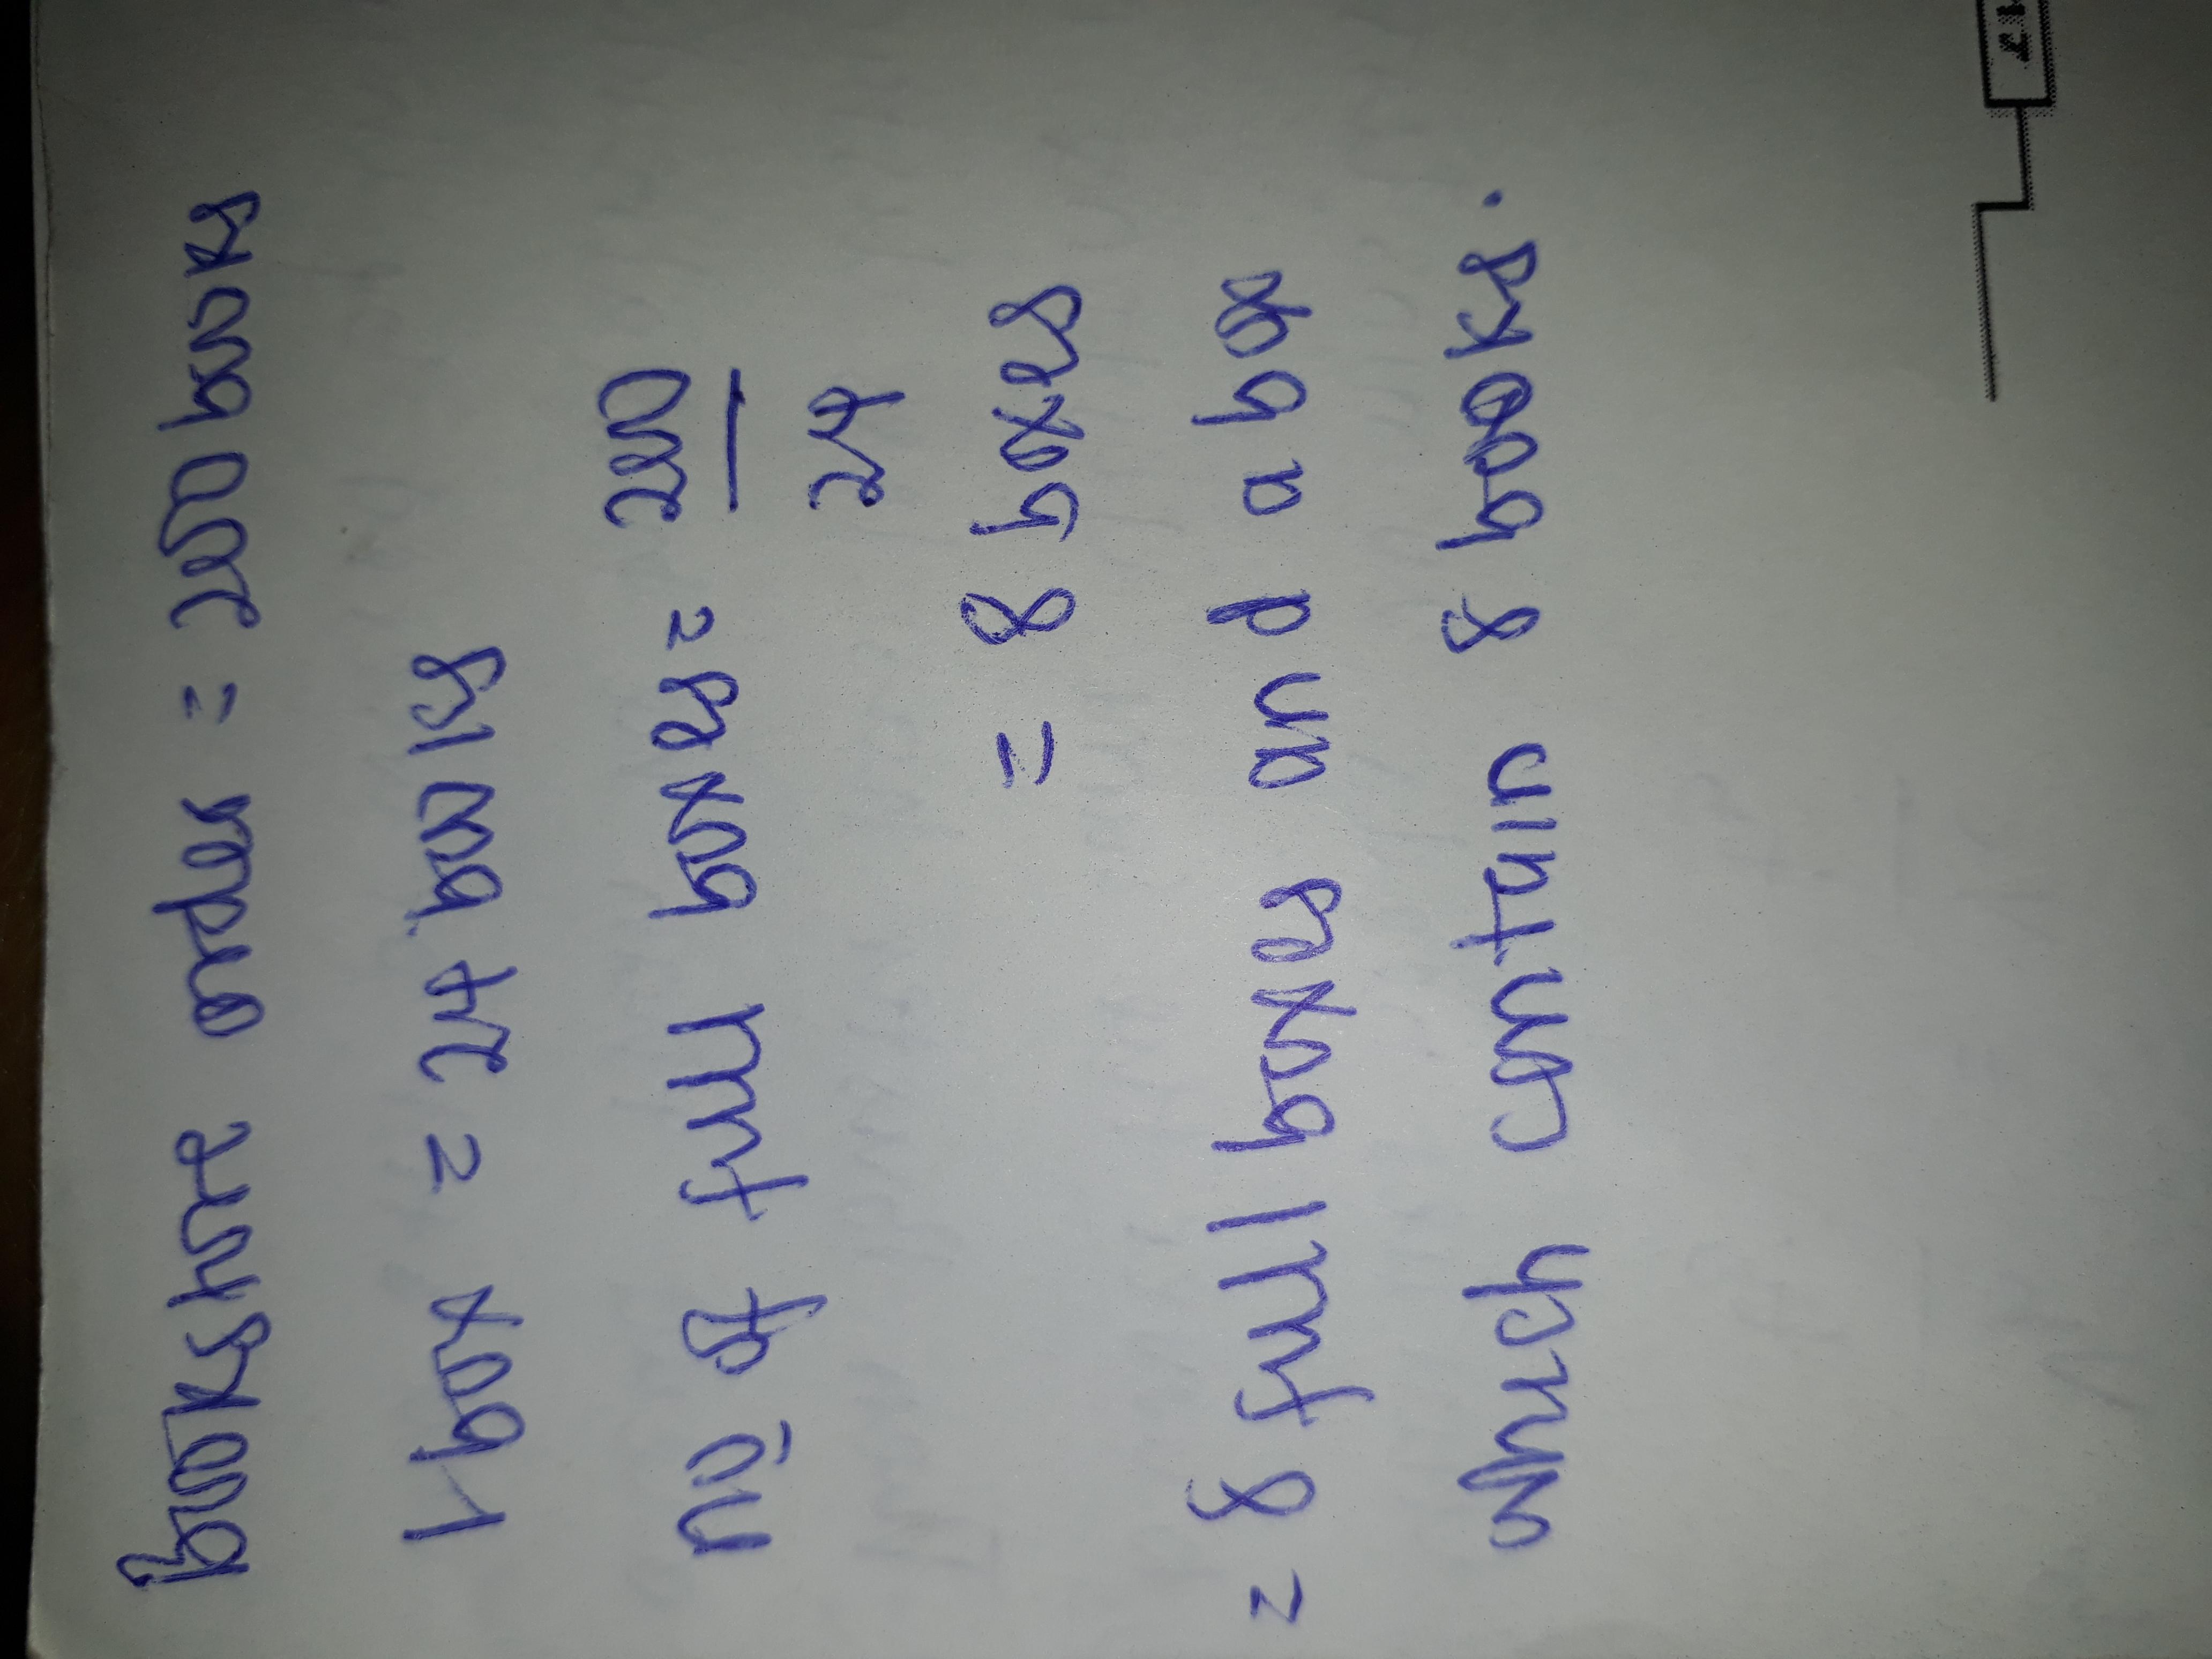 Bookstore order = 200 books
1 box = 24 books
no of full boxes = 200
24
= 8 boxes
= 8 full boxes and a box
which contain 8 books.
H7